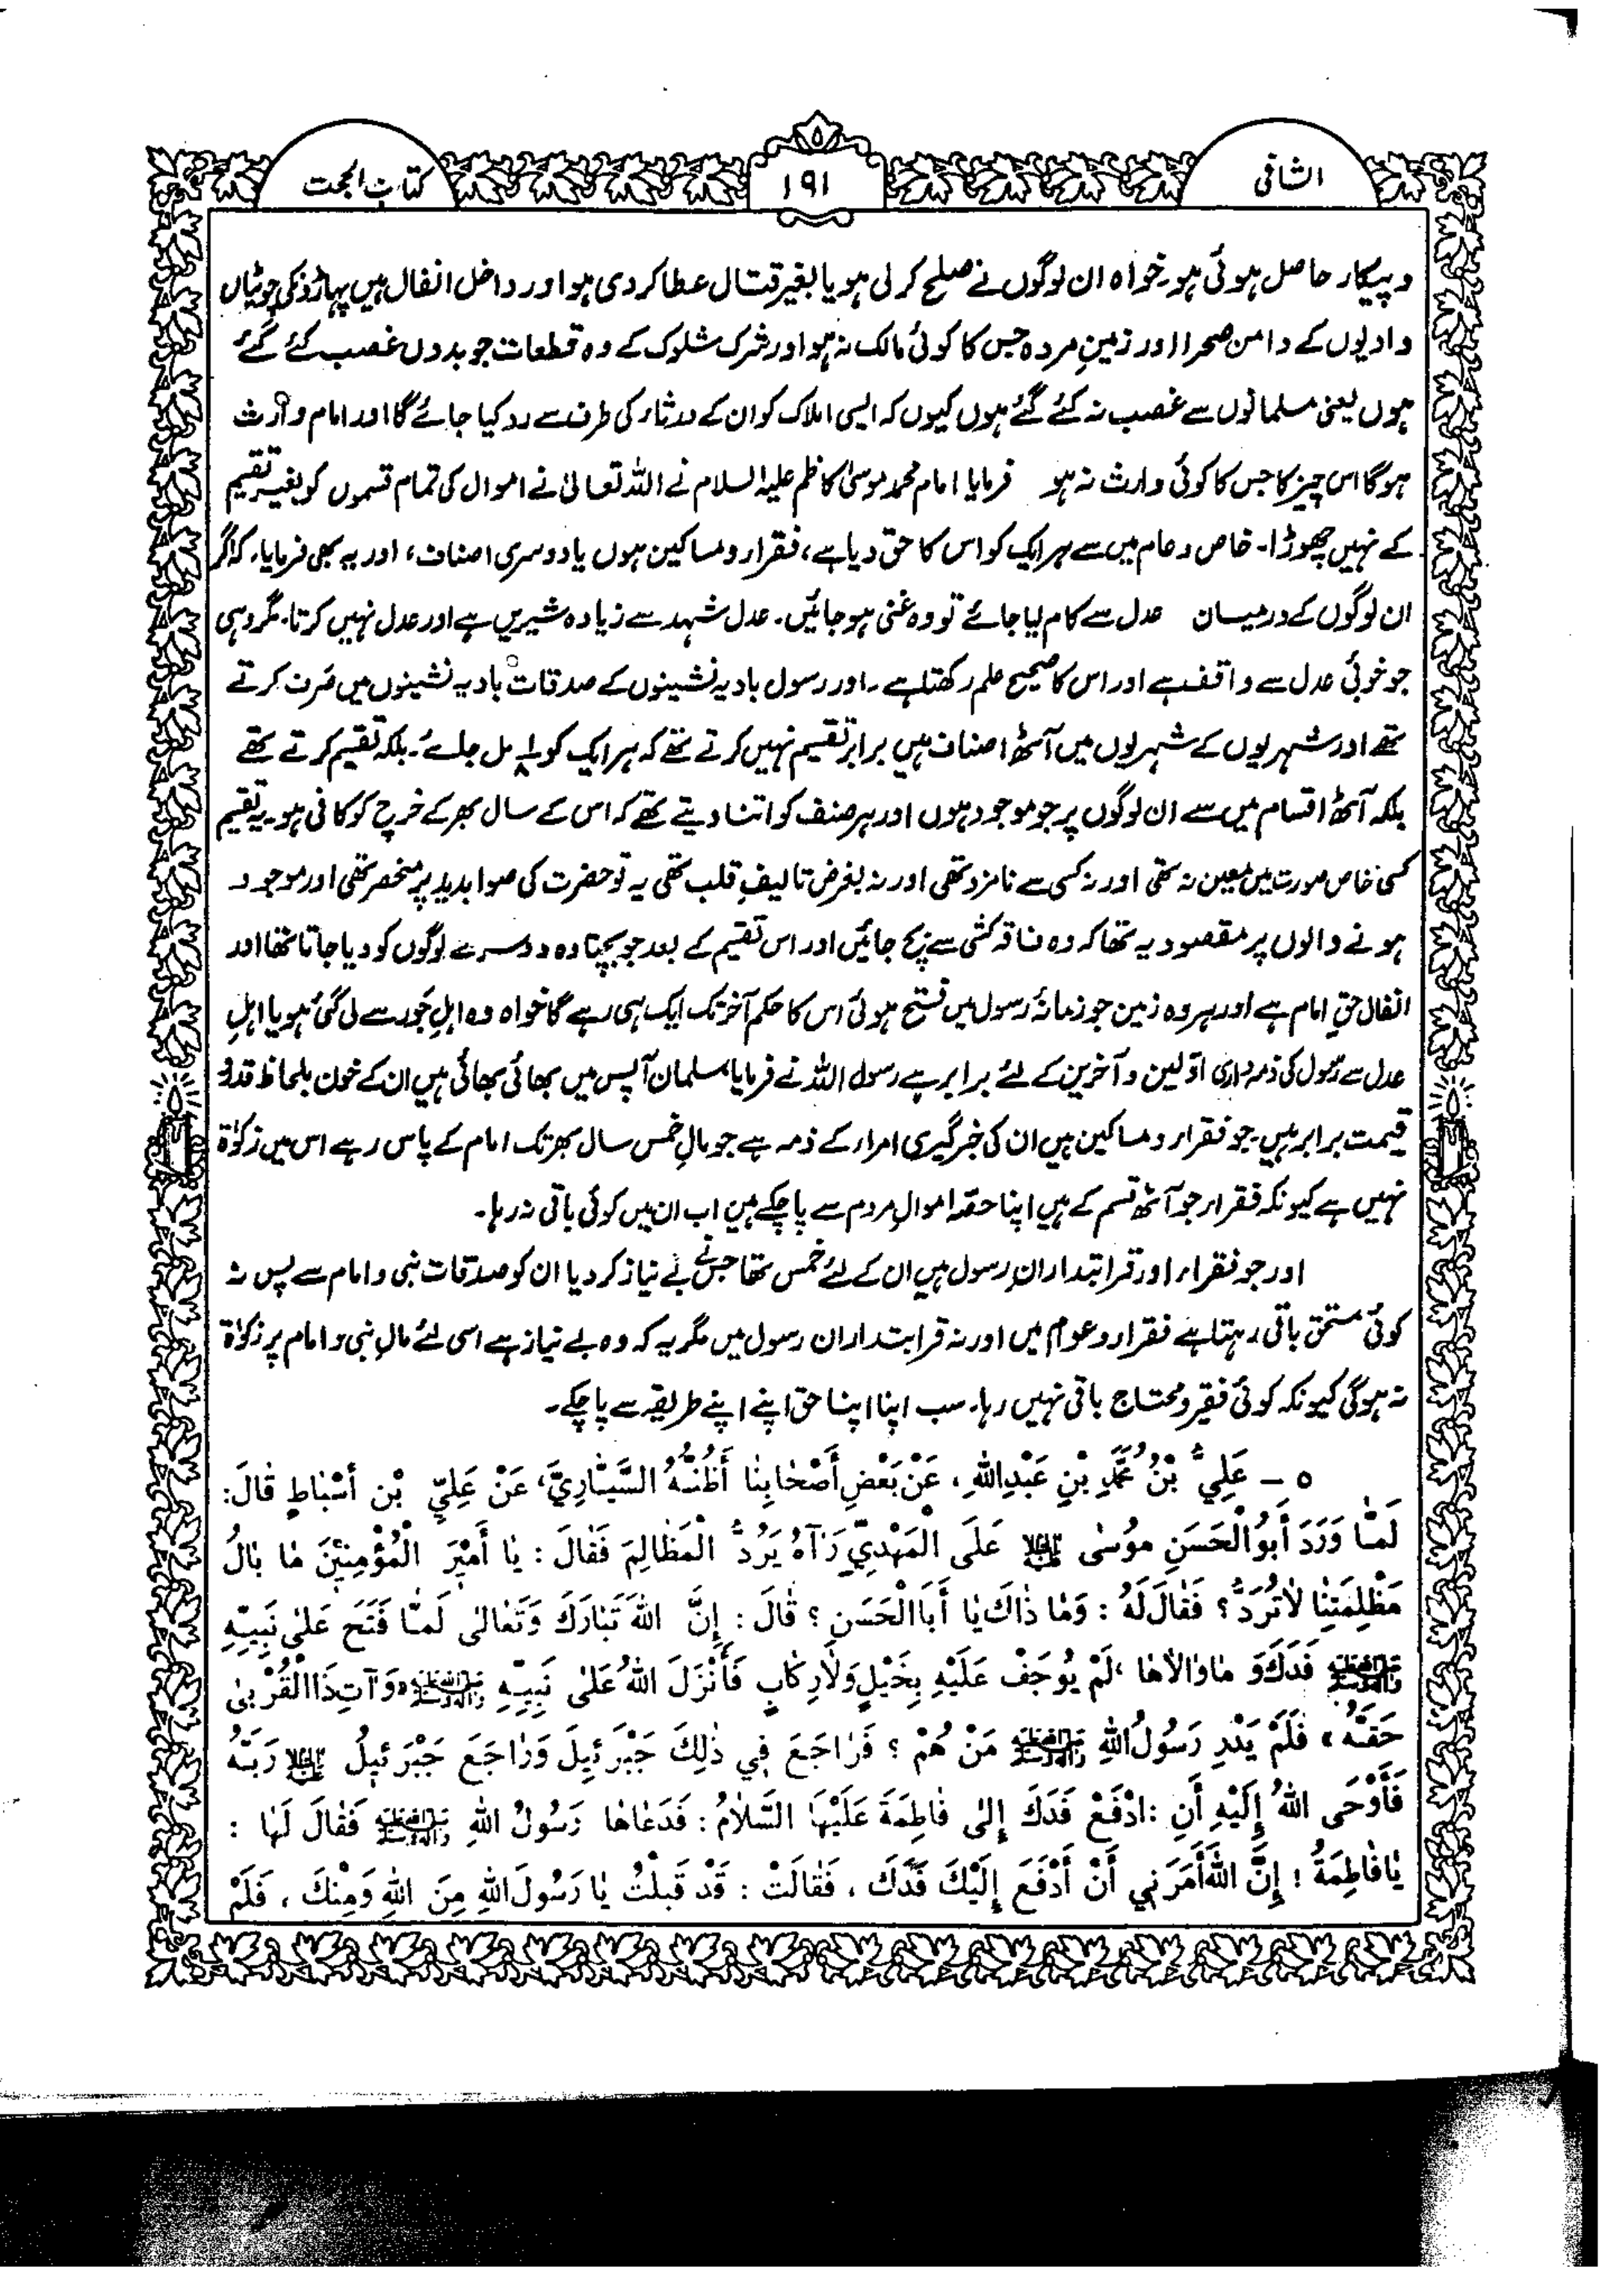 الشافی
۱۹۱
کتاب الحجت
و پیکار حاصل ہوئی ہو۔ خواہ ان لوگوں نے صلح کر لی ہو یا بغیر قتال عطا کر دی ہو اور داخل انفال ہیں پہاڑوں کی چوٹیاں
وادیوں کے دامن صحرا اور زمینِ مردہ جس کا کوئی مالک نہ ہو اور شرک شلوک کے وہ قطعات جو بدوں غصب کئے گئے
ہوں یعنی مسلمانوں سے غصب نہ کئے گئے ہوں کیوں کہ ایسی املاک کو ان کے ورثار کی طرف سے رد کیا جائے گا اور امام وارث
ہوگا اس چیز کا جس کا کوئی وارث نہ ہو فرمایا امام محمد موسیٰ کاظم علیہ السلام نے اللہ تعالیٰ نے اموال کی تمام قسموں کو بغیر تقسیم
کے نہیں چھوڑا۔ خاص و عام میں سے ہر ایک کو اس کا حق دیا ہے، فقرار و مساکین ہوں یا دوسری اصناف، اور یہ بھی فرمایا۔ کہ اگر
ان لوگوں کے درمیان عدل سے کام لیا جائے تو وہ غنی ہو جائیں۔ عدل شہد سے زیادہ شیریں ہے اور عدل نہیں کرتا۔ مگر وہی
جو خوبئ عدل سے واقف ہے اور اس کا صحیح علم رکھتا ہے۔ اور رسول بادیہ نشینوں کے صدقات بادیہ نشینوں میں صَرف کرتے
تھے اور شہریوں کے شہریوں میں آٹھ اصناف ہیں برابر تقسیم نہیں کرتے تھے کہ ہر ایک کو ⅛ مل جائے۔ بلکہ تقسیم کرتے تھے
بلکہ آٹھ اقسام میں سے ان لوگوں پر جو موجود ہوں اور ہر صنف کو اتنا دیتے تھے کہ اس کے سال بھر کے خرچ کو کافی ہو۔ یہ تقسیم
کسی خاص صورت میں معین نہ تھی اور نہ کسی سے نامزد تھی اور نہ بغرض تالیفِ قلب تھی یہ تو حضرت کی صوابدید پر منحصر تھی اور موجود
ہونے والوں پر مقصود یہ تھا کہ وہ فاقہ کشی سے بچ جائیں اور اس تقسیم کے بعد جو بچتا وہ دوسرے لوگوں کو دیا جاتا تھا اور
انفال حقِ امام ہے اور ہر وہ زمین جو زمانۂ رسول میں فتح ہوئی اس کا حکم آخر تک ایک ہی رہے گا خواہ وہ اہلِ جَور سے لی گئی ہو یا اہلِ
عدل سے رسول کی ذمہ داری اوّلین و آخرین کے لئے برابر ہے رسول اللہ نے فرمایا مسلمان آپس میں بھائی بھائی ہیں ان کے خون بلحاظ قدر و
قیمت برابر ہیں۔ جو فقرار و مساکین ہیں ان کی خبر گیری امرار کے ذمہ ہے جو مالِ خمس سال بھر تک امام کے پاس رہے اس میں زکوٰۃ
نہیں ہے کیونکہ فقرار جو آٹھ قسم کے ہیں اپنا حصّہ اموالِ مردم سے پا چکے ہیں اب ان میں کوئی باقی نہ رہا۔
اور جو فقرار، اور قرابتدارانِ رسول ہیں ان کے لئے خمس تھا جس نے بے نیاز کر دیا ان کو صدقات نبی و امام سے پس نہ
کوئی مستحق باقی رہتا ہے فقرار و عوام میں اور نہ قرابتداران رسول میں مگر یہ کہ وہ بے نیاز ہے اسی لئے مالِ نبی و امام پر زکوٰۃ
نہ ہوگی کیونکہ کوئی فقیر و محتاج باقی نہیں رہا۔ سب اپنا اپنا حق اپنے اپنے طریقہ سے پا چکے۔
۵ - عَلِيُّ بْنُ مُحَمَّدِ بْنِ عَبْدِاللهِ، عَنْ بَعْضِ أَصْحَابِنَا أَظُنُّهُ السَّيَّارِيَّ، عَنْ عَلِيِّ بْنِ أَسْبَاطٍ قَالَ:
لَمَّا وَرَدَ أَبُوالْحَسَنِ مُوسَى عليه السلام عَلَى الْمَهْدِيِّ رَآهُ يَرُدُّ الْمَظَالِمَ فَقَالَ : يَا أَمِيرَ الْمُؤْمِنِينَ مَا بَالُ
مَظْلِمَتِنَا لَاتُرَدُّ؟ فَقَالَ لَهُ : وَمَا ذَاكَ يَا أَبَاالْحَسَنِ ؟ قَالَ : إِنَّ اللهَ تَبَارَكَ وَتَعَالَى لَمَّا فَتَحَ عَلَى نَبِيِّهِ
صلى الله عليه وآله فَدَكَ وَ مَا وَالَاهَا ، لَمْ يُوجَفْ عَلَيْهِ بِخَيْلٍ وَلَارِكَابٍ فَأَنْزَلَ اللهُ عَلَى نَبِيِّهِ صلى الله عليه وآله «وَآتِ ذَاالْقُرْبَى
حَقَّهُ» فَلَمْ يَدْرِ رَسُولُ اللهِ صلى الله عليه وآله مَنْ هُمْ ؟ فَرَاجَعَ فِي ذَلِكَ جَبْرَئِيلَ وَرَاجَعَ جَبْرَئِيلُ عليه السلام رَبَّهُ
فَأَوْحَى اللهُ إِلَيْهِ أَنِ : ادْفَعْ فَدَكَ إِلَى فَاطِمَةَ عَلَيْهَا السَّلَامُ: فَدَعَاهَا رَسُولُ اللهِ صلى الله عليه وآله فَقَالَ لَهَا :
يَافَاطِمَةُ ! إِنَّ اللهَ أَمَرَنِي أَنْ أَدْفَعَ إِلَيْكَ فَدَكَ ، فَقَالَتْ : قَدْ قَبِلْتُ يَا رَسُولَ اللهِ مِنَ اللهِ وَمِنْكَ ، فَلَمْ